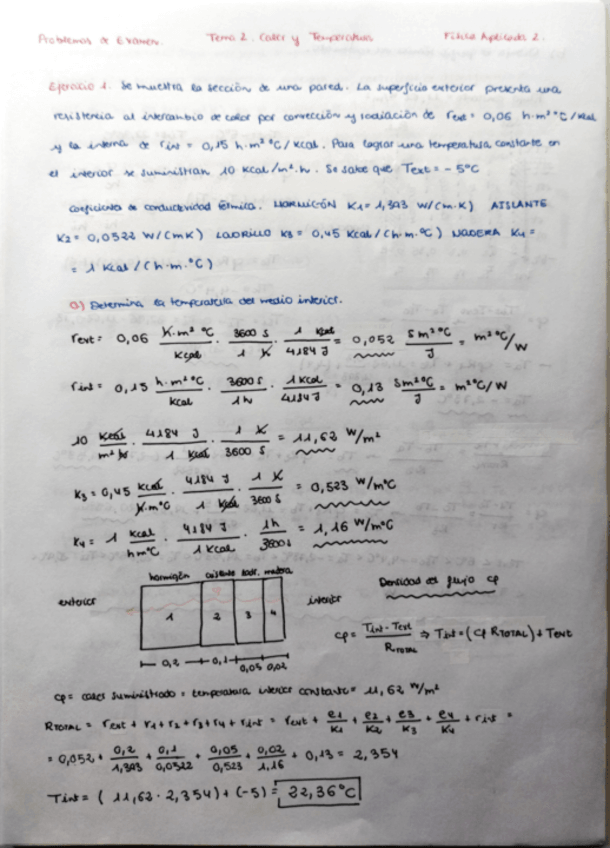 Problemas de Examen. Tema 2. Calor y Temperatura Física Aplicada 2.
Ejercicio 1. Se muestra la sección de una pared. La superficie exterior presenta una
resistencia al intercambio de calor por convección y radiación de rext = 0,06 h·m²°C/kcal
y la interna de rint = 0,15 h·m²°C/kcal. Para lograr una temperatura constante en
el interior se suministran 10 kcal/m²·h. Se sabe que Text = -5°C
coeficiente de conductividad térmica. HORMIGÓN K1 = 1,393 W/(m·K) AISLANTE
K2 = 0,0322 W/(mK) LADRILLO K3 = 0,45 kcal/(h·m·°C) MADERA K4 =
= 1 kcal/(h·m·°C)
a) Determina la temperatura del medio interior.
rext = 0,06 h·m²°C/kcal · 3600 s/1 h · 1 kcal/4184 J = 0,052 s m²°C/J = m²°C/W
rint = 0,15 h·m²°C/kcal · 3600 s/1h · 1 kcal/4184 J = 0,13 s m²°C/J = m²°C/W
10 kcal/m² h · 4184 J/1 kcal · 1 h/3600 s = 11,62 W/m²
K3 = 0,45 kcal/h·m°C · 4184 J/1 kcal · 1 h/3600 s = 0,523 W/m°C
K4 = 1 kcal/h m°C · 4184 J/1 kcal · 1h/3600 s = 1,16 W/m°C
hormigón aislante ladr. madera Densidad de flujo φ
exterior 1 2 3 4 interior
φ = Tint - Text/RTOTAL ⇒ Tint = (φ RTOTAL) + Text
0,2 0,1 0,05 0,02
φ = calor suministrado = temperatura interior constante = 11,62 W/m²
RTOTAL = rext + r1 + r2 + r3 + r4 + rint = rext + e1/K1 + e2/K2 + e3/K3 + e4/K4 + rint =
= 0,052 + 0,2/1,393 + 0,1/0,0322 + 0,05/0,523 + 0,02/1,16 + 0,13 = 2,354
Tint = (11,62 · 2,354) + (-5) = 22,36°C